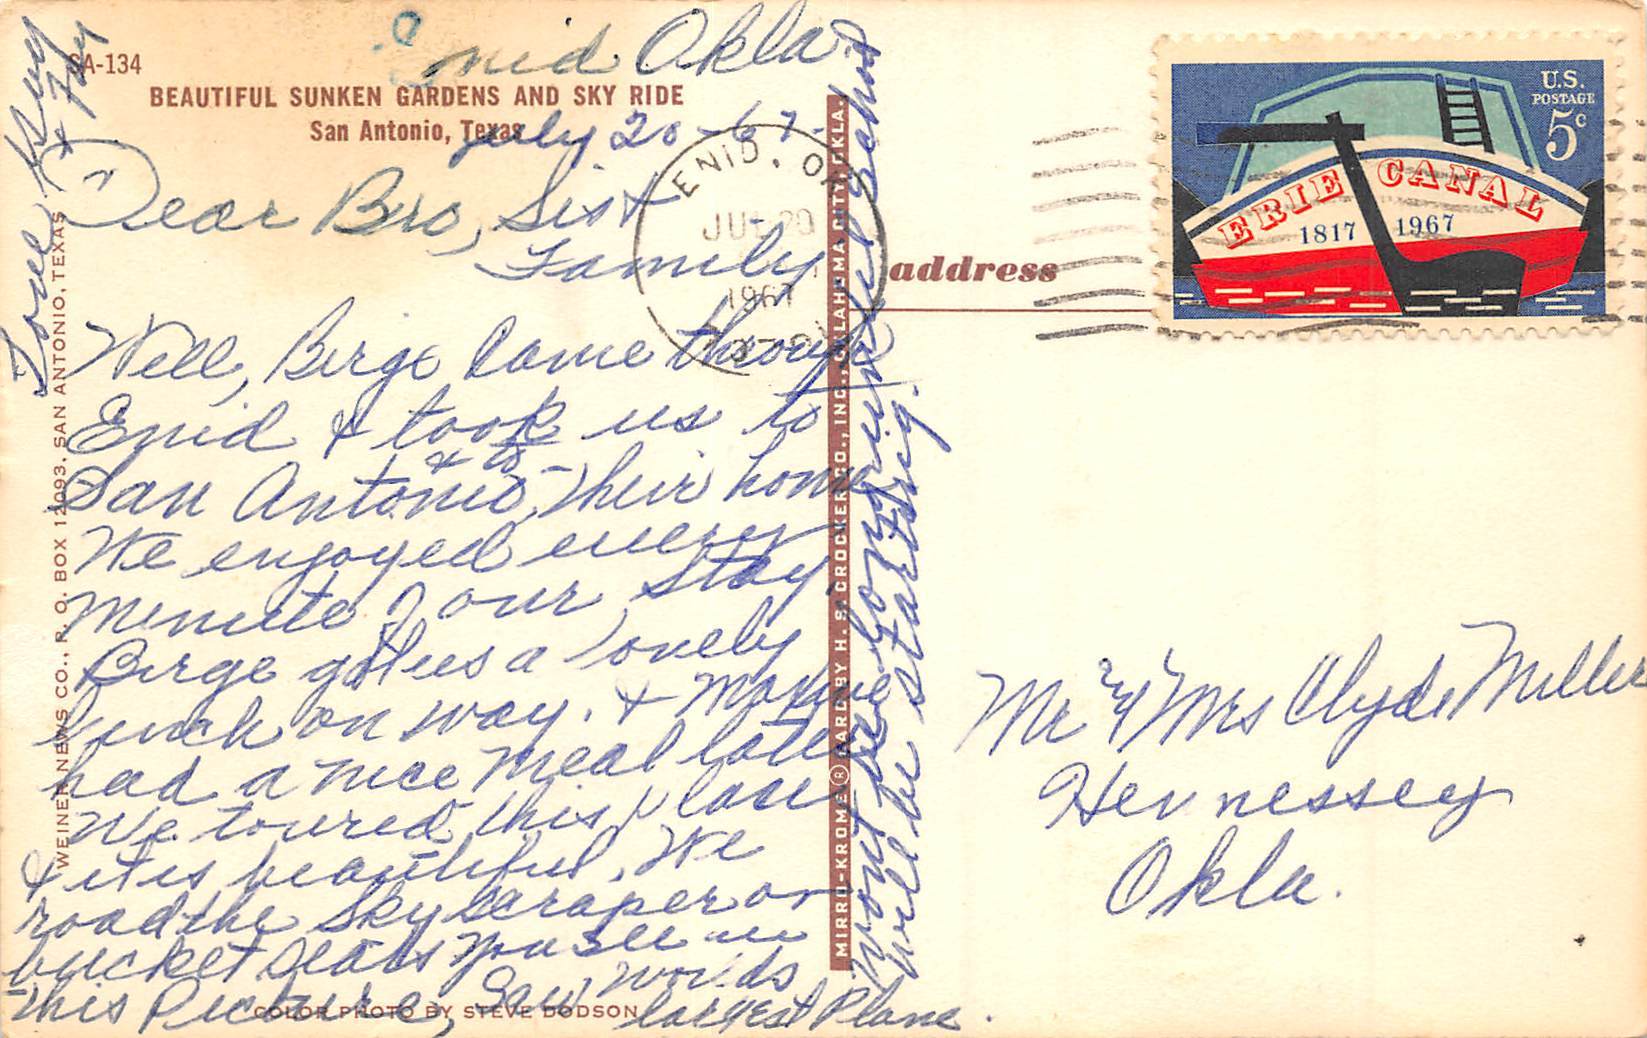 SA-134
BEAUTIFUL SUNKEN GARDENS AND SKY RIDE
San Antonio, Texas
Enid Okla
July 20-67.
Dear Bro, Sis &
Family
Well, Birge Came through
Enid & took us to
& to
San Antonio, their home
We enjoyed every
minute of our stay.
Birge got us a lovely
lunch on way. & Maxine
had a nice meal later
We toured this place
& it is beautiful. We
road the sky scraper or
bucket seats you see in
this Picture, Saw worlds
largest Plane.
wont be long until School
will be starting.
Love
WEINER NEWS CO., P. O. BOX 12093, SAN ANTONIO, TEXAS
COLOR PHOTO BY STEVE DODSON
MIRRO-KROME® CARD BY H. S. CROCKER CO., INC., OKLAHOMA CITY, OKLA.
ENID, OK
JUL 20
1967
address
U.S.
POSTAGE
5c
ERIE CANAL
1817 1967
Mr & Mrs Clyde Miller
Hennessey
Okla.